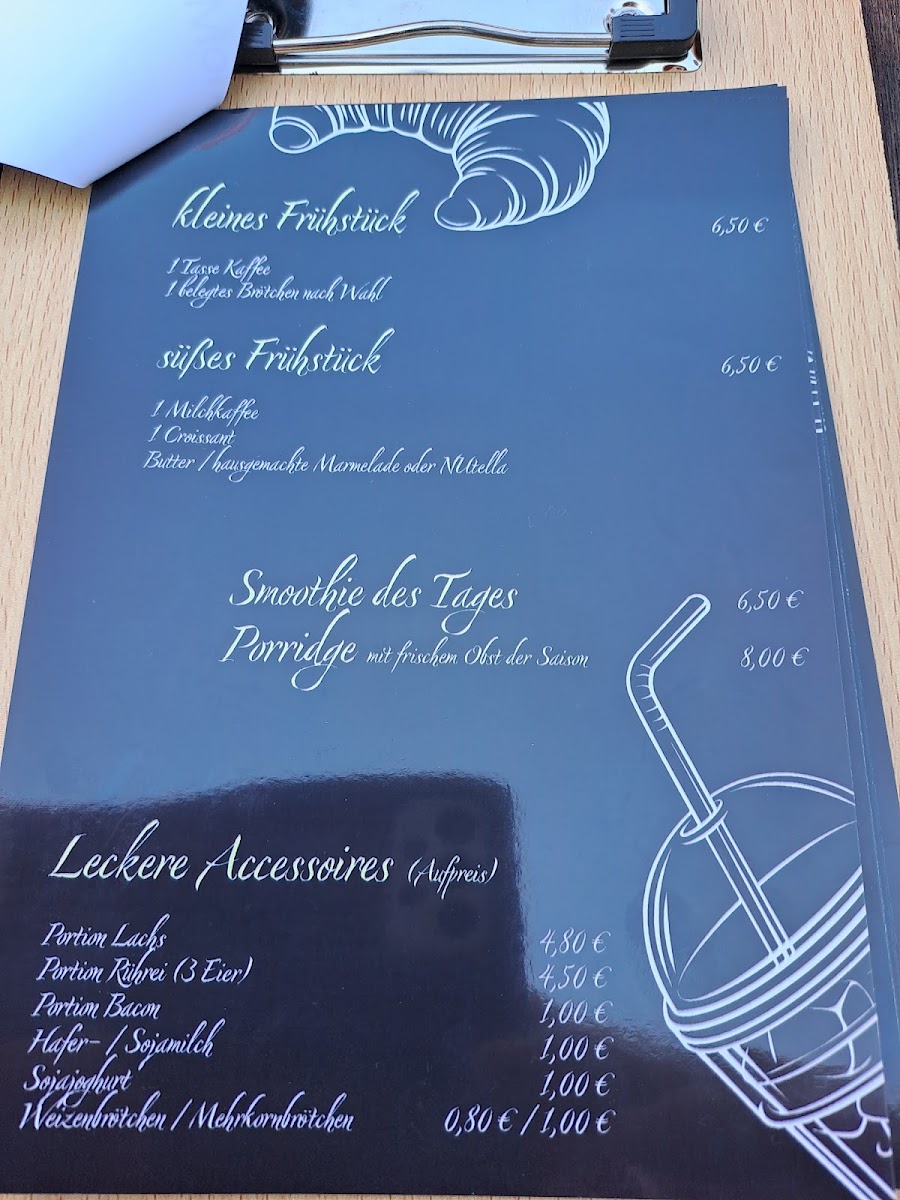 kleines Frühstück 6,50 €
1 Tasse Kaffee
1 belegtes Brötchen nach Wahl
süßes Frühstück 6,50 €
1 Milchkaffee
1 Croissant
Butter / hausgemachte Marmelade oder NUtella
Smoothie des Tages 6,50 €
Porridge mit frischem Obst der Saison 8,00 €
Leckere Accessoires (Aufpreis)
Portion Lachs 4,80 €
Portion Rührei (3 Eier) 4,50 €
Portion Bacon 1,00 €
Hafer- / Sojamilch 1,00 €
Sojajoghurt 1,00 €
Weizenbrötchen / Mehrkornbrötchen 0,80 € / 1,00 €